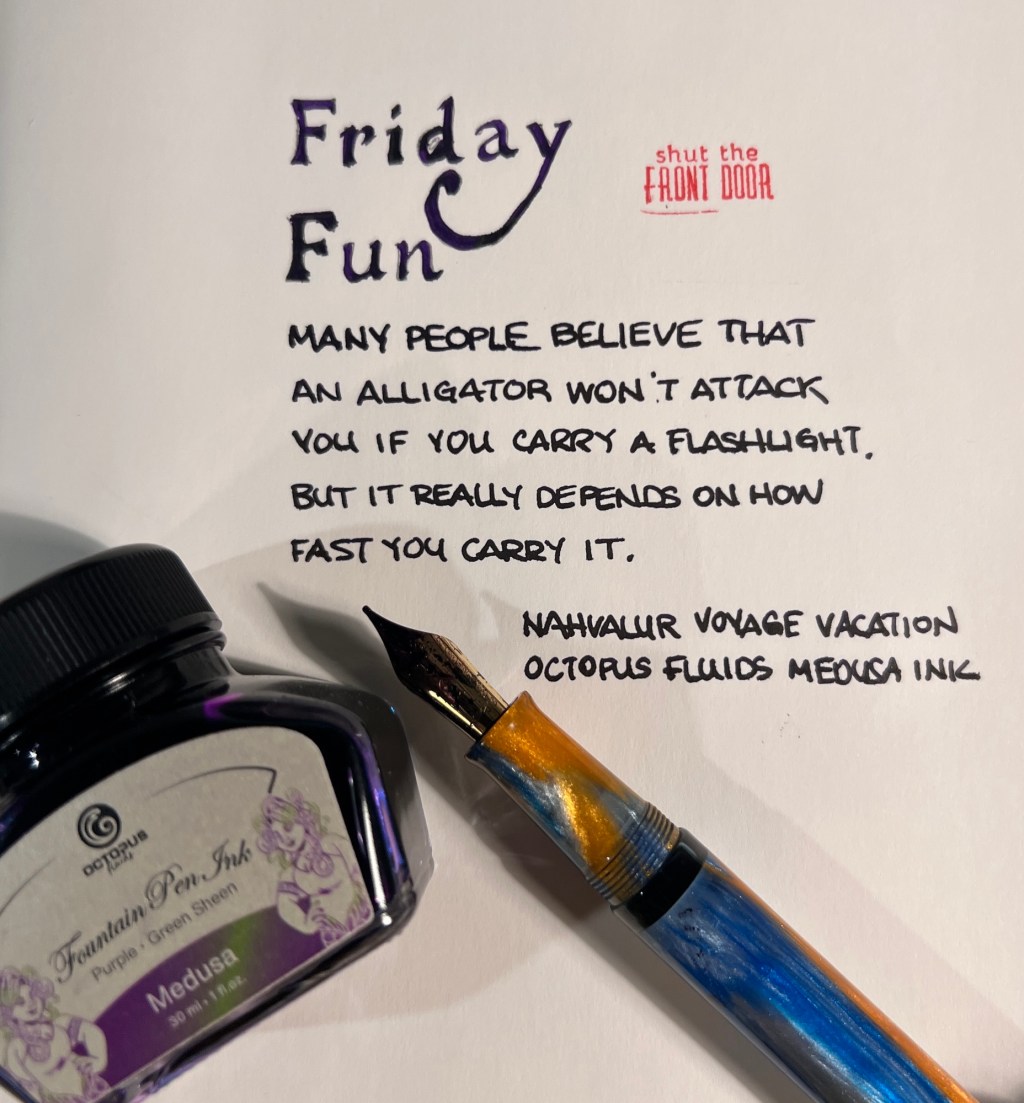 Friday
Fun
shut the
FRONT DOOR
MANY PEOPLE BELIEVE THAT
AN ALLIGATOR WON'T ATTACK
YOU IF YOU CARRY A FLASHLIGHT.
BUT IT REALLY DEPENDS ON HOW
FAST YOU CARRY IT.
NAHVALUR VOYAGE VACATION
OCTOPUS FLUIDS MEDUSA INK
OCTOPUS
fluids
Fountain Pen Ink
Purple • Green Sheen
Medusa
30 ml • 1 fl.oz.